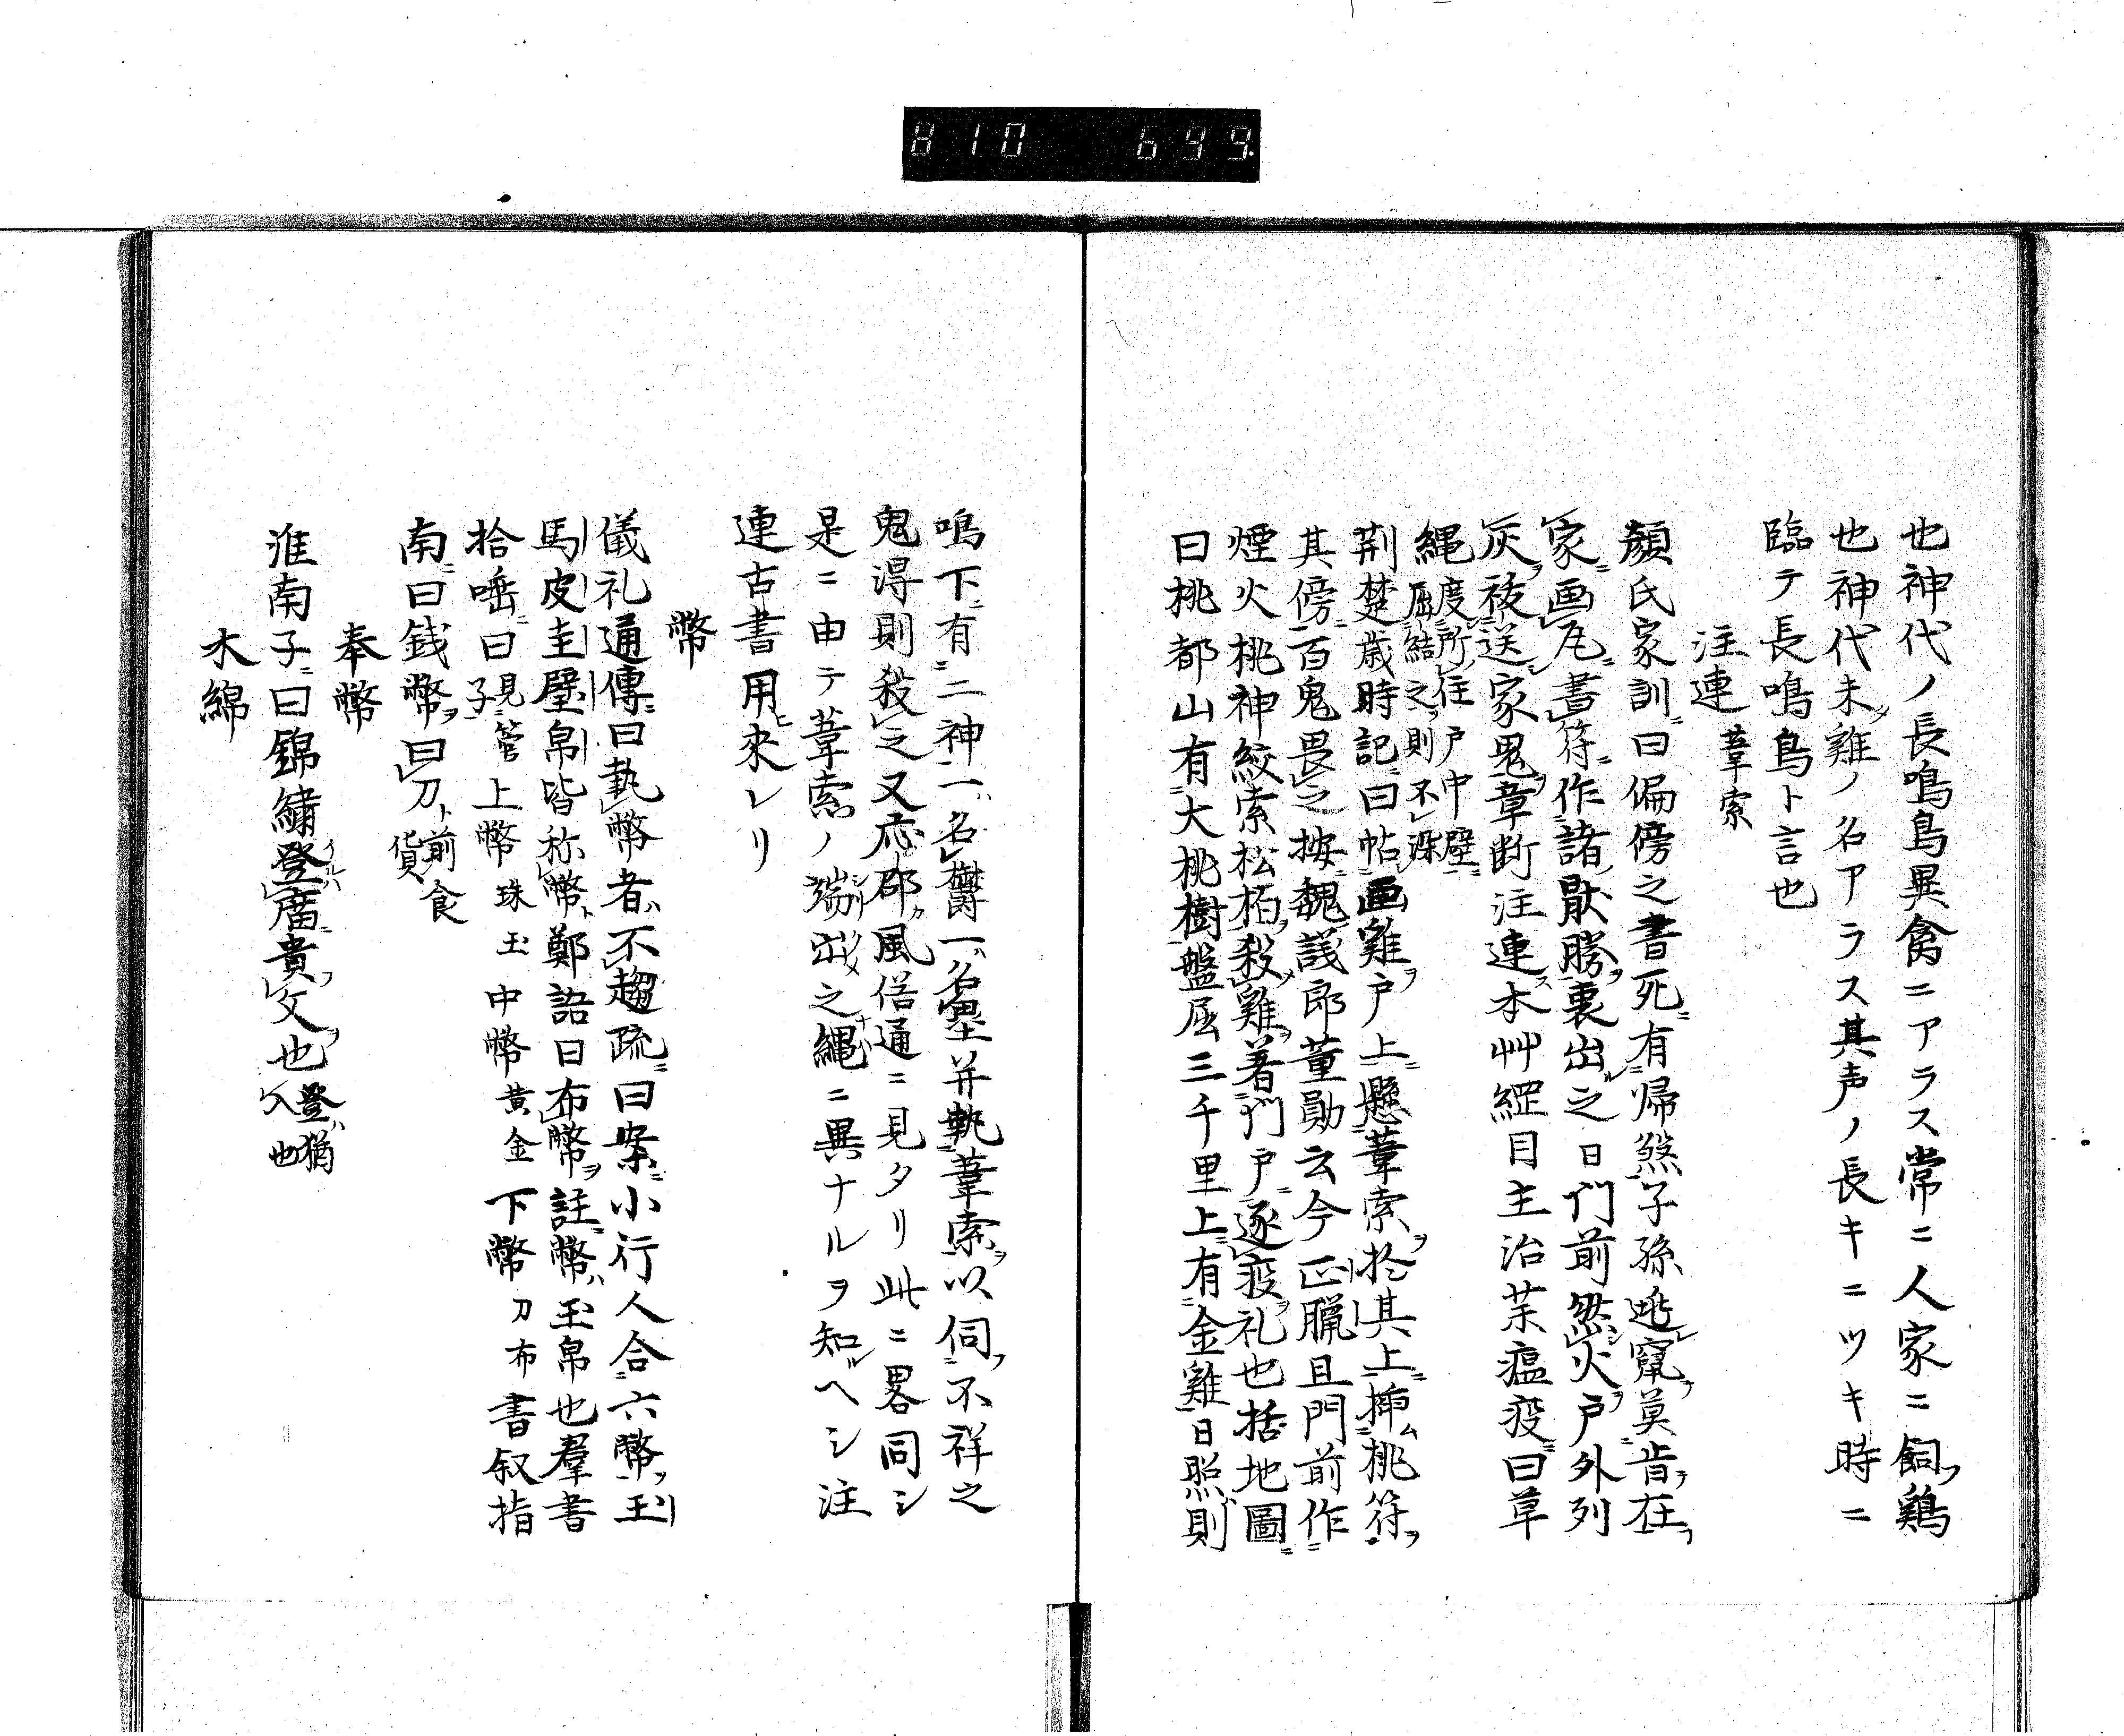 810 649.
也神代ノ長鳴鳥異禽ニアラス常ニ人家ニ飼フ鶏
也神代未タ雞ノ名アラス其声ノ長キニツキ時ニ
臨テ長鳴鳥ト言也
注連 葦索
顔氏家訓ニ曰偏傍之書死ニ有帰煞子孫逃竄フ莫肯テ在ラ
家ニ画瓦ニ書符ニ作諸厭勝ヲ喪出ルニ之日門前然シ火ヲ戸外列
灰ヲ祓送家鬼ヲ章断注連ス本艸綱目主治茱瘟疫ニ曰草
縄 度所住戸中壁ニ屈結之ヲ則不染
荊楚歳時記ニ曰帖画雞ヲ戸上ニ懸葦索ヲ於其上ニ挿ム桃符フ
其傍ニ百鬼畏之按魏議郎董勛云今正臘旦門前作
煙火桃神絞索松柏ヲ殺メ雞ヲ著門戸ニ逐疫ヲ礼也括地圖ニ
曰桃都山有ニ大桃樹盤屈三千里上ニ有ニ金雞日照則
鳴下ニ有ニ二神一ハ名欝一ハ名壘并執葦索ヲ以伺フ不祥之
鬼淂則殺之又応邵カ風俗通ニ見タリ此ニ畧同シ
是ニ由テ葦索ノ端出之縄ニ異ナルヲ知ルヘシ注
連古書用ヒ来レリ
幣
儀礼通傳ニ曰執幣者ハ不趨疏ニ曰案ニ小行人合ニ六幣ヲ玉
馬皮圭璧帛皆称幣ト鄭語曰布幣ヲ註ニ幣ハ玉帛也羣書
拾唾ニ曰 見管子ニ 上幣 珠玉 中幣 黄金 下幣 刀布 書叙指
南ニ曰銭幣ヲ曰刀ト 前食貨
奉幣
淮南子ニ曰錦繡登ルハ庿ニ貴フ文ヲ也 登ハ猶入也
木綿